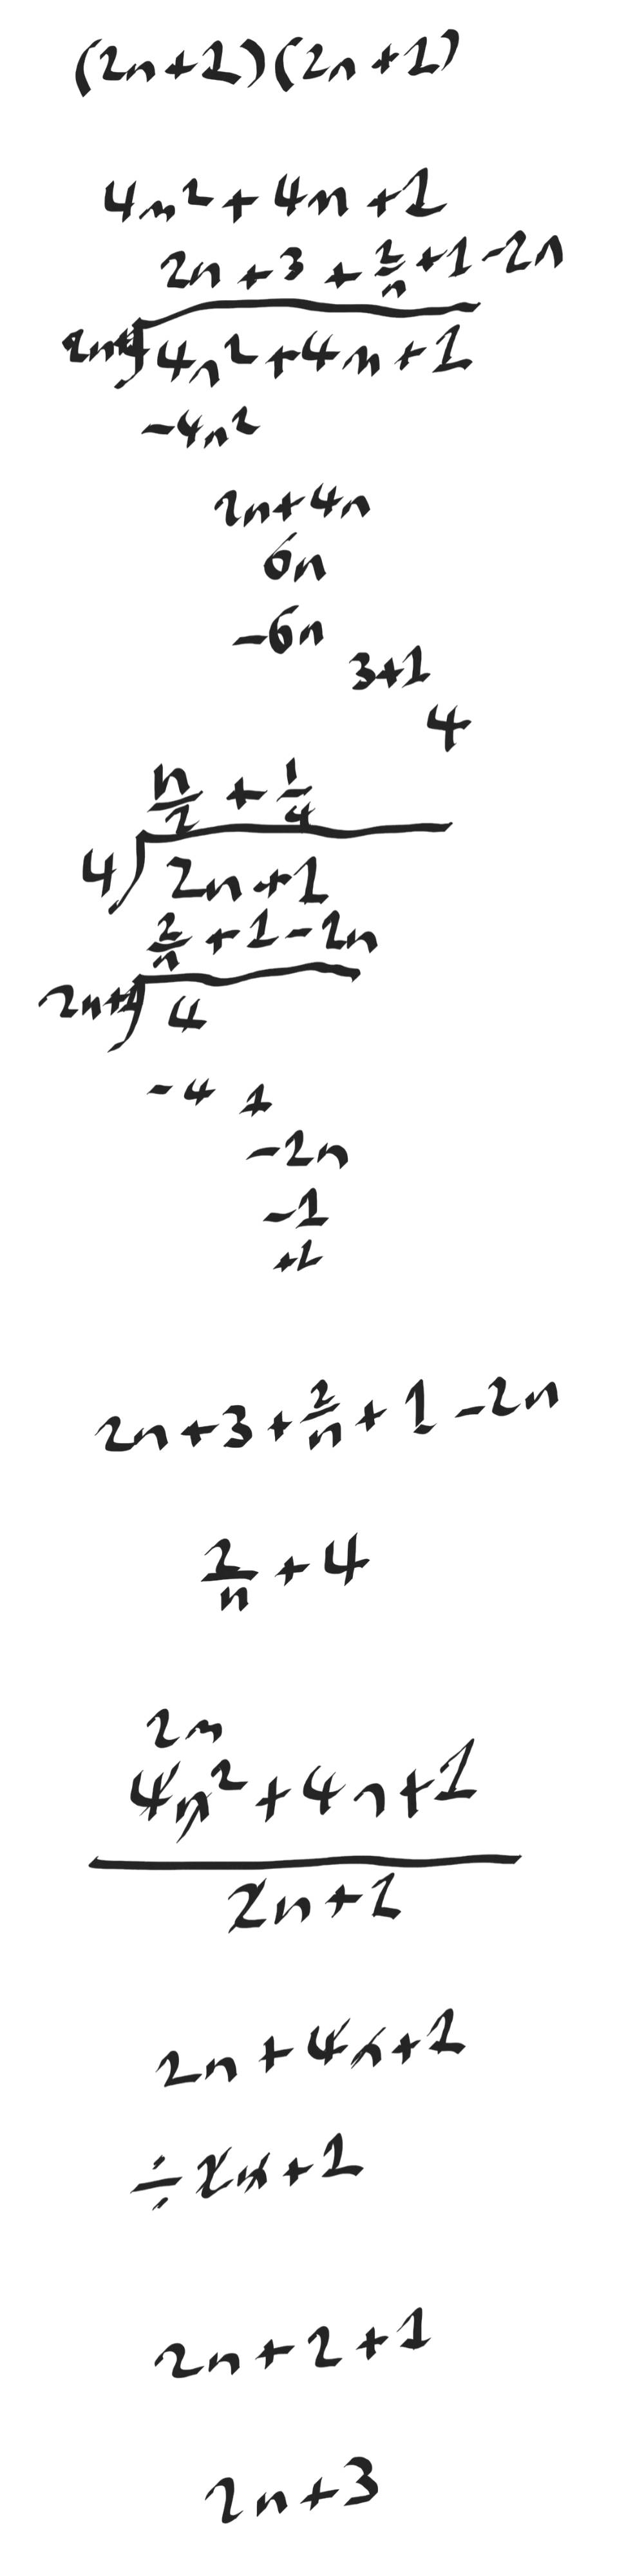 (2n+1)(2n+1)
4n²+4n+1
2n+3+2/n+1-2n
2n+1)4n²+4n+1
-4n²
2n+4n
6n
-6n
3+1
4
n/2+1/4
4)2n+1
2/n+1-2n
2n+1)4
-4 1
-2n
-1
+1
2n+3+2/n+1-2n
2/n+4
2n
4n²+4n+1
2n+1
2n+4n+1
÷2n+1
2n+2+1
2n+3